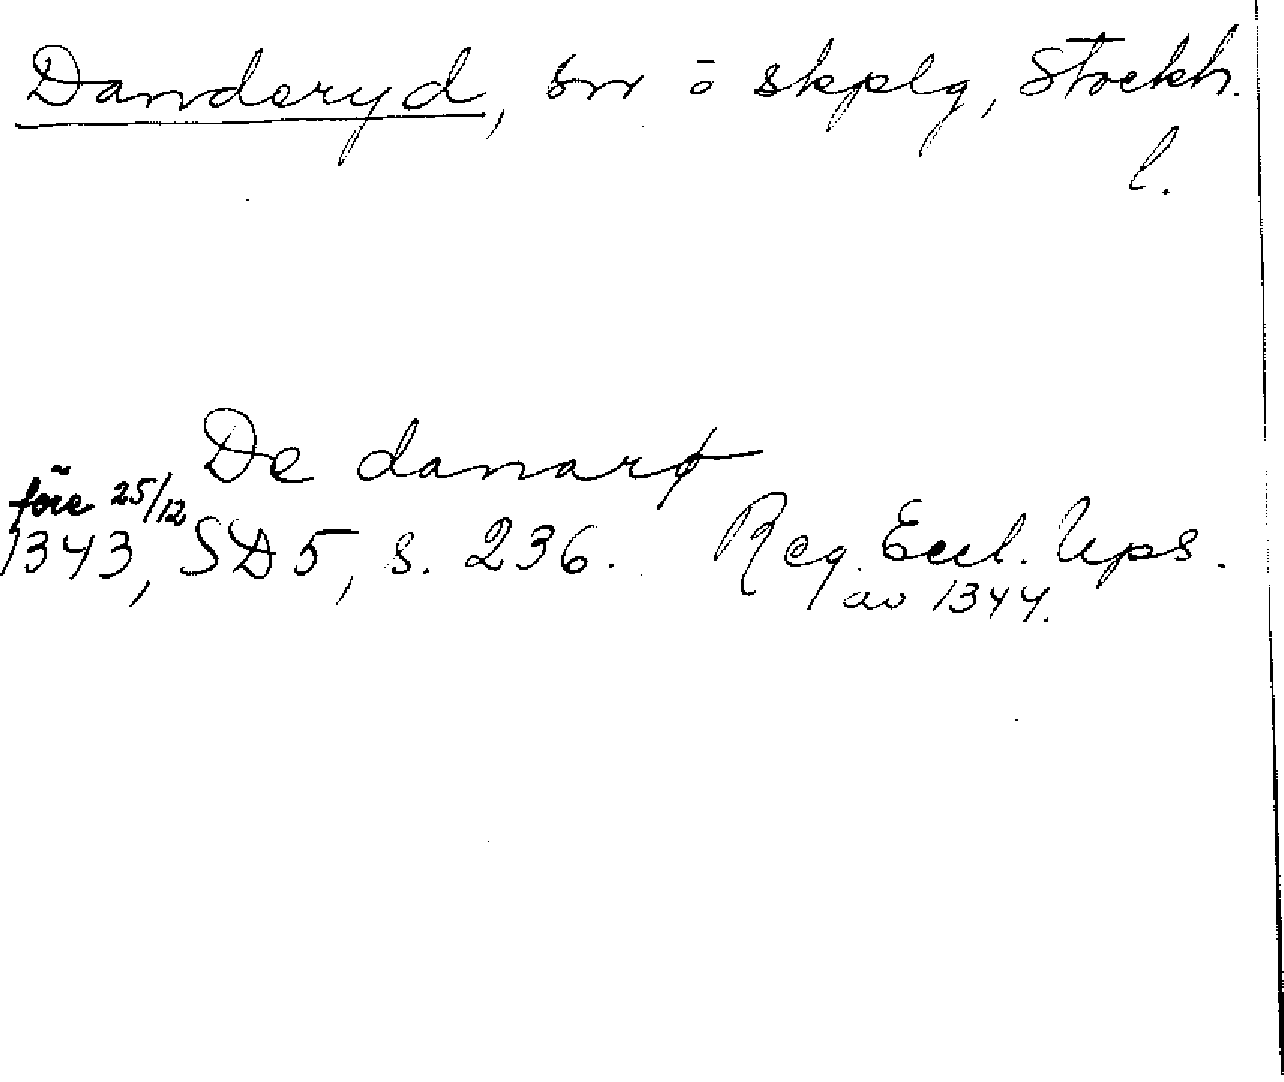 Danderyd, sn ö skplg, Stockh.
l.
De danarø
före 25/12
1343, SD 5, s. 236. Reg. Eccl. Ups.
av 1344.